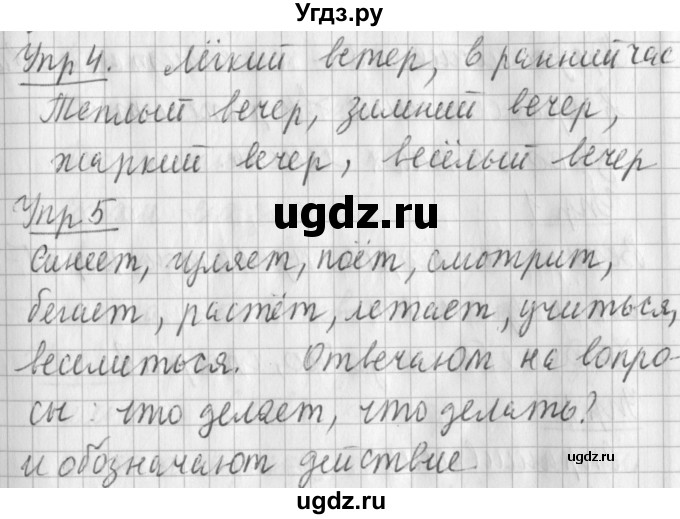 Угдз.ру
Упр 4. Лёгкий ветер, в ранний час
Теплый вечер, зимний вечер,
жаркий вечер, весёлый вечер
Упр 5
ugdz.ru
Синеет, гуляет, поёт, смотрит,
бегает, растёт, летает, учиться,
веселиться. Отвечают на вопро-
сы: что делает, что делать?
и обозначают действие
©ugdz.ru
ugdz.ru